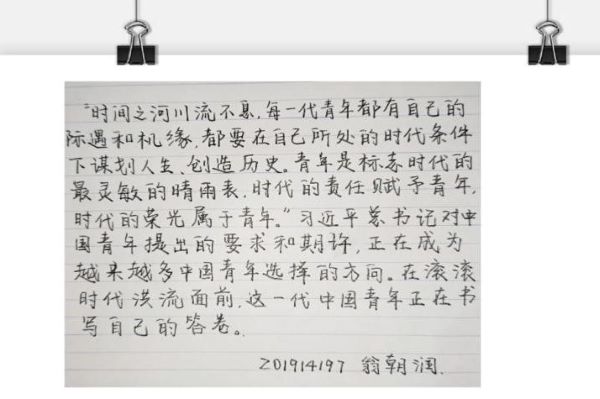 “时间之河川流不息，每一代青年都有自己的
际遇和机缘，都要在自己所处的时代条件
下谋划人生、创造历史。青年是标志时代的
最灵敏的晴雨表，时代的责任赋予青年，
时代的荣光属于青年。”习近平总书记对中
国青年提出的要求和期许，正在成为
越来越多中国青年选择的方向。在滚滚
时代洪流面前，这一代中国青年正在书
写自己的答卷。
201914197 翁朝润